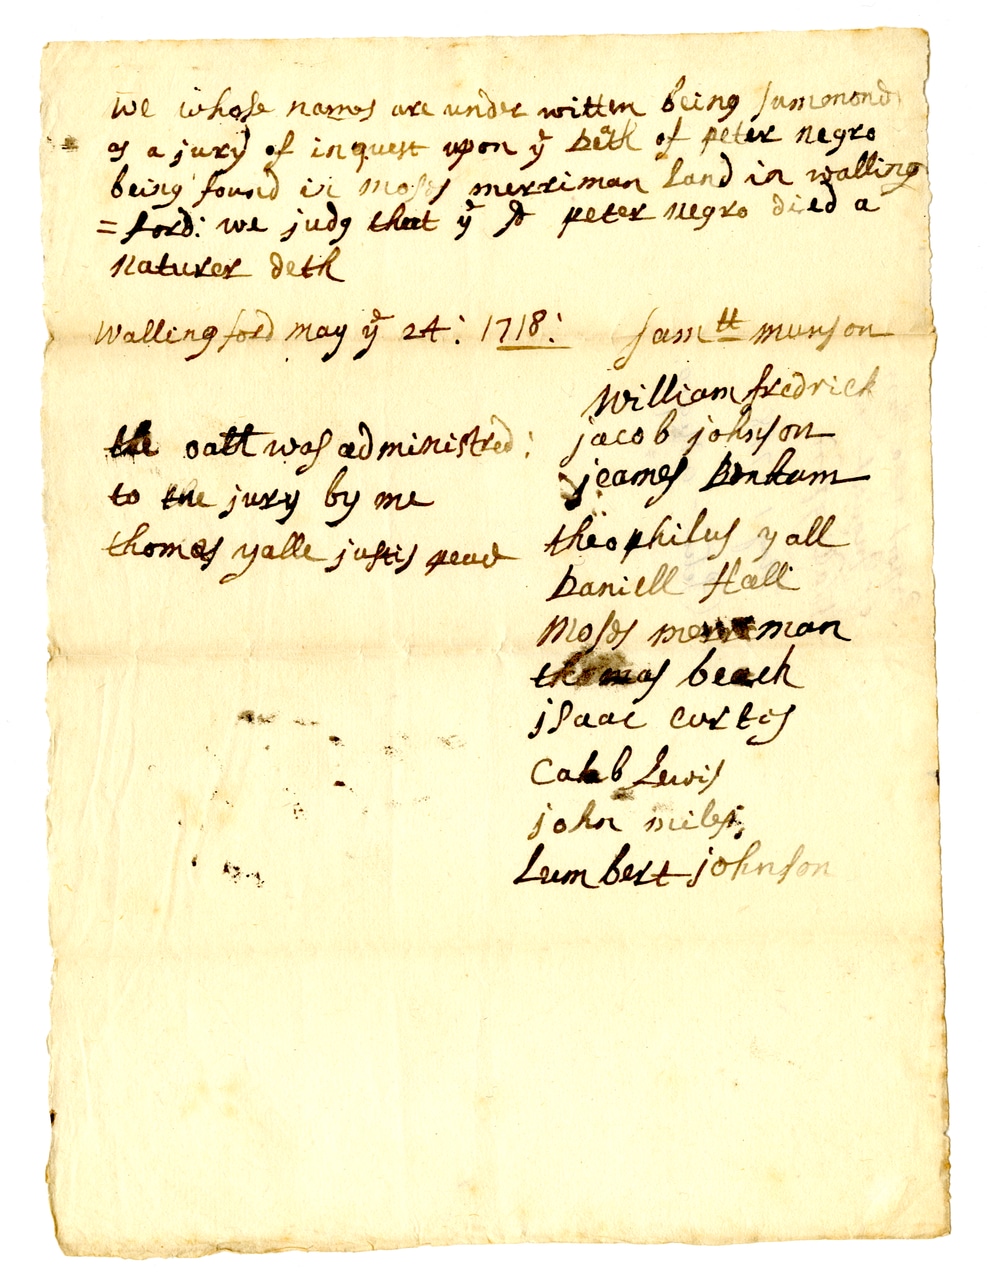 We whose names are under written being sumonond
as a jury of inquest upon yͤ Deth of peter negro
being found in Moses merriman Land in walling
=ford: we judg that yͤ sd peter negro died a
naturer deth
Wallingford may yͤ 24: 1718:
samll munson
William fredrick
jacob johnson
jeames Benham
theophilus yall
Daniell Hall
Moses merriman
thomas beach
isaac curtis
Caleb Lewis
john miles
Lumbert johnson
the oath was administred:
to the jury by me
thomas yalle justis peace